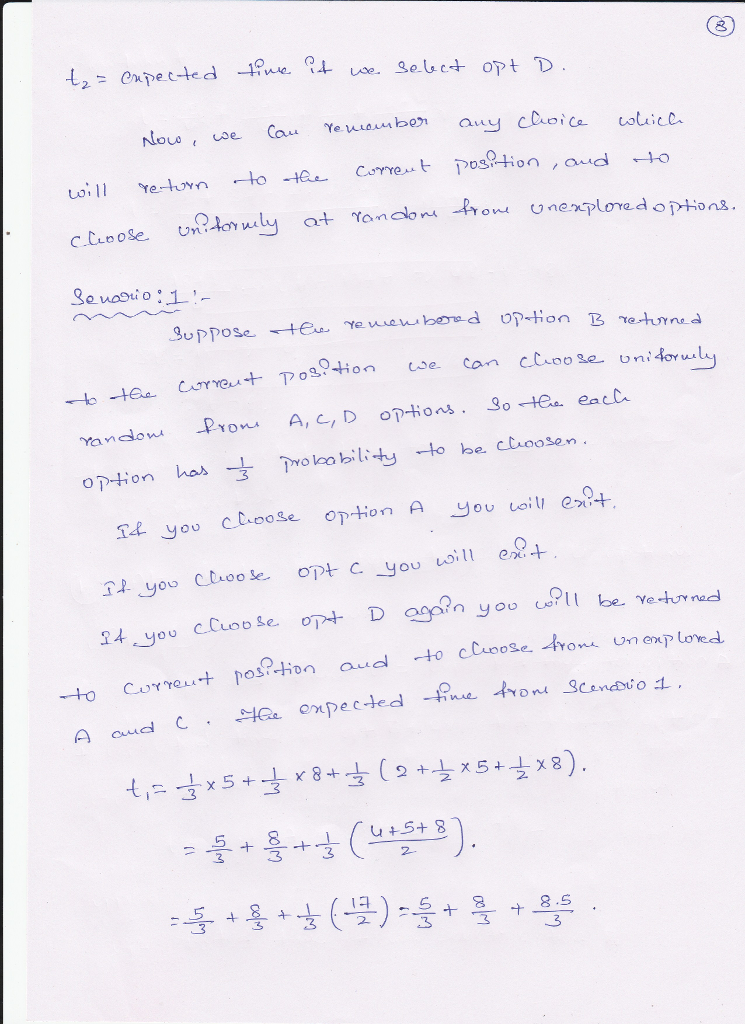 8
t₂ = expected time if we select opt D.
Now, we can remember any choice which
will return to the current position, and to
choose uniformly at random from unexplored options.
Senario: 1 :-
Suppose the remembered option B returned
to the current position we can choose uniformly
random from A, C, D options. So the each
option has 1/3 probability to be choosen.
If you choose option A you will exit.
If you choose opt C you will exit.
If you choose opt D again you will be returned
to current position and to choose from unexplored
A and C. The expected time from Scenario 1.
t₁ = 1/3 × 5 + 1/3 × 8 + 1/3 (2 + 1/2 × 5 + 1/2 × 8).
= 5/3 + 8/3 + 1/3 ((4+5+8)/2).
= 5/3 + 8/3 + 1/3 (17/2) = 5/3 + 8/3 + 8.5/3 .